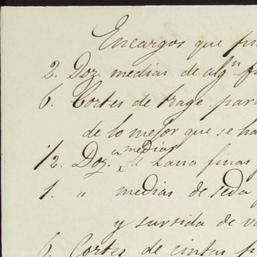 Encargos que
2. Doz. medias de algn
6. Cortes de trage par
de lo mejor que se ha
1/2 Doz.a medias de Lana finas
1. " medias de seda
y surtida de
6. Cortes de cintas p